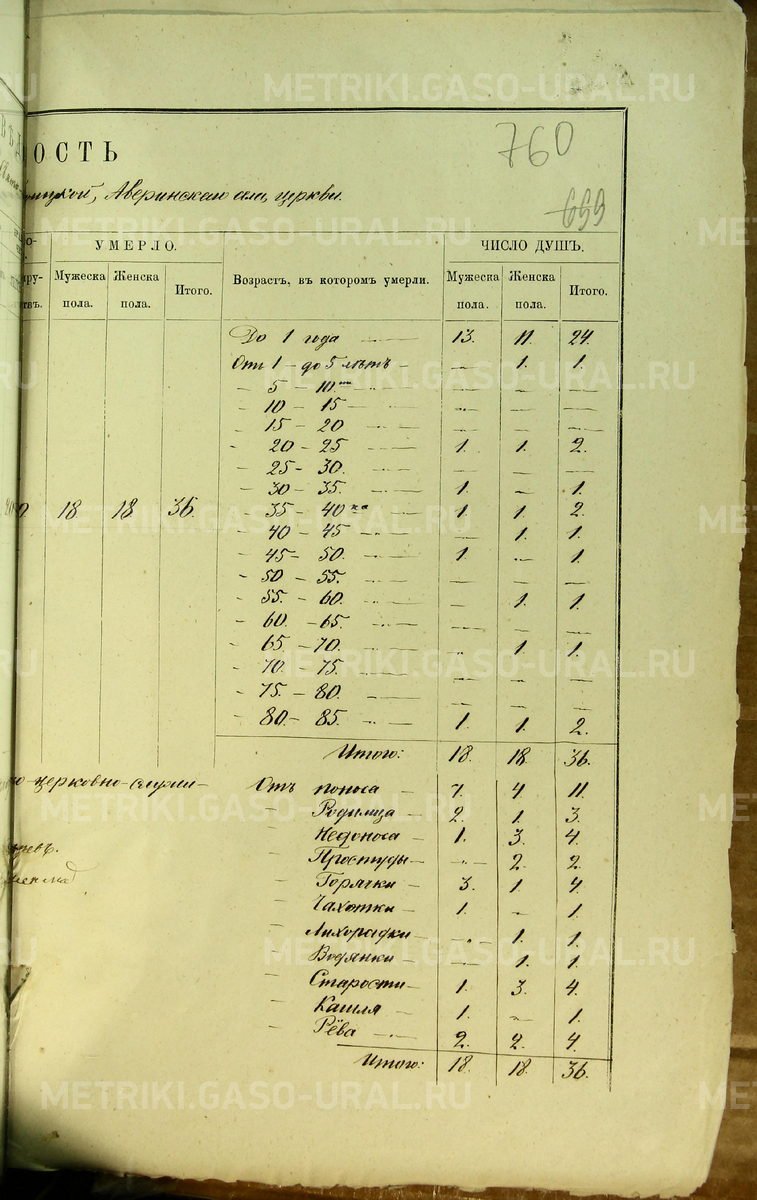 METRIKI.GASO-URAL.RU
760
ОСТЬ
699
Аверинскаго села, церкви.
УМЕРЛО. ЧИСЛО ДУШЪ.
Мужеска пола. Женска пола. Итого. Возрастъ, въ которомъ умерли. Мужеска пола. Женска пола. Итого.
До 1 года — 13. 11. 24.
Отъ 1 – до 5 лѣтъ – — 1. 1.
– 5 – 10. — — — —
– 10 – 15 — — — —
– 15 – 20 — — — —
– 20 – 25 — 1. 1. 2.
– 25 – 30. — — — —
– 30 – 35. — 1. – 1.
18 18 36. – 35 – 40 — 1. 1. 2.
– 40 – 45 — — 1. 1.
– 45 – 50. — 1. — 1.
– 50 – 55. — — — —
– 55. – 60. — – 1. 1.
– 60. – 65. — — — —
– 65. – 70. — — 1. 1.
– 70. – 75. — — — —
– 75. – 80. — — — —
– 80. – 85. — 1. 1. 2.
Итого: 18. 18. 36.
церковно-служи-
Отъ поноса – 7. 4 11.
– Родимца – 2. 1. 3.
– Недоноса – 1. 3. 4.
– Простуды – — 2. 2.
– Горячки – 3. 1. 4.
– Чахотки – 1. – 1.
– Лихорадки – — 1. 1.
– Водянки – — 1. 1.
– Старости – 1. 3. 4.
– Кашля – 1. – 1.
– Рёва — 2. 2. 4.
Итого: 18. 18. 36.